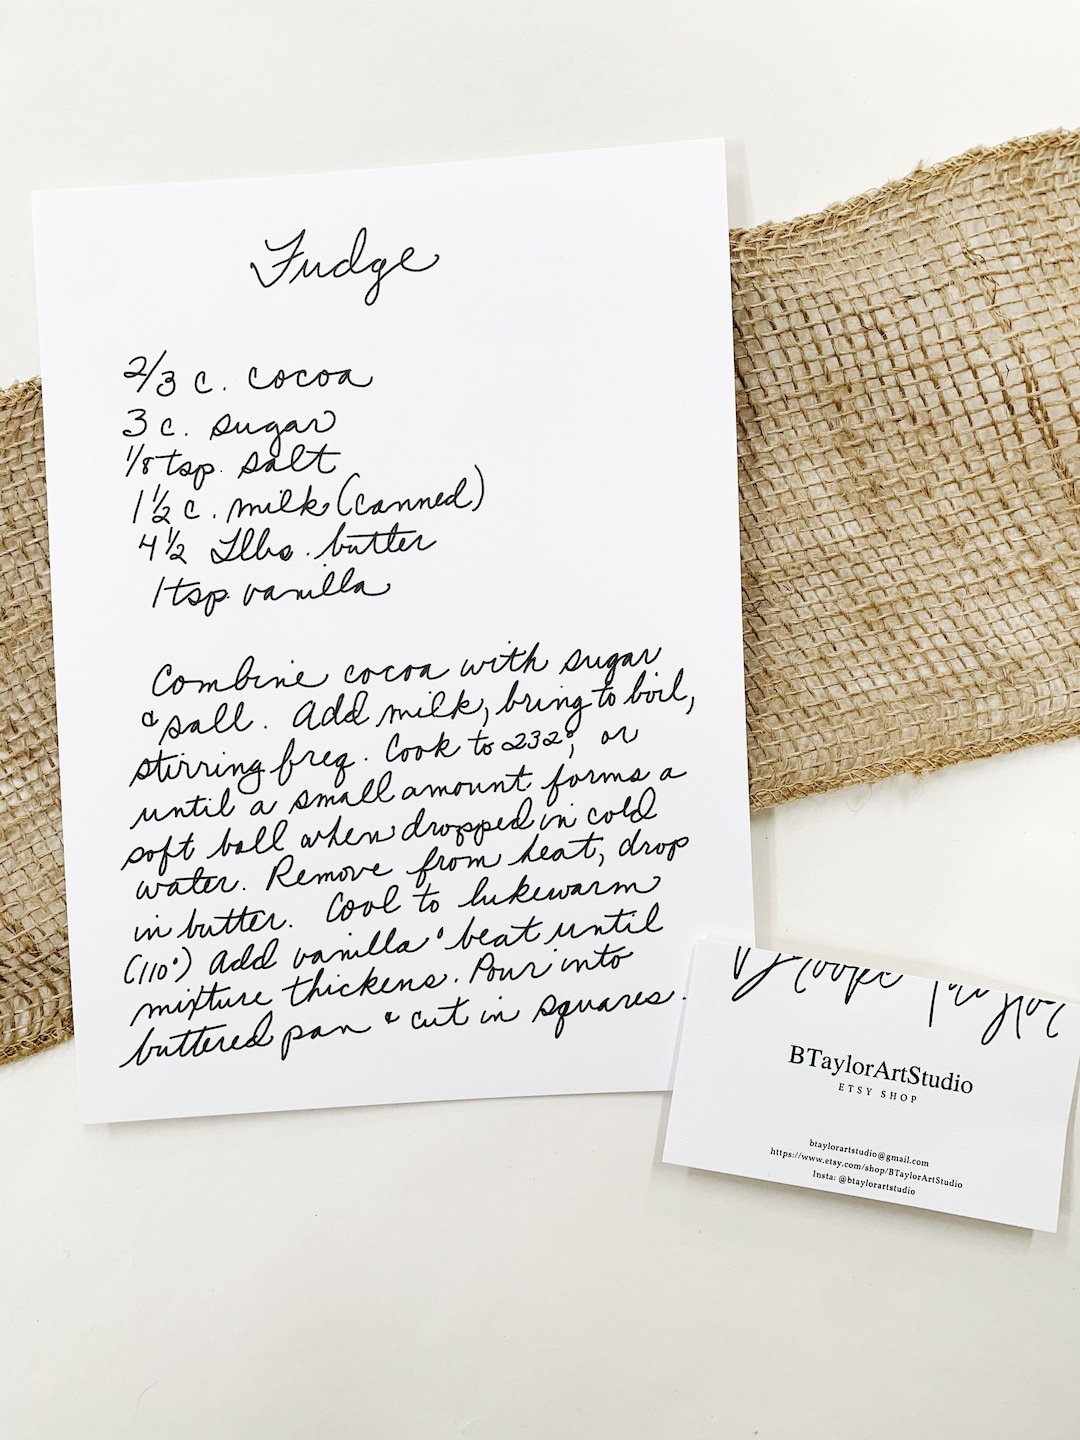 Fudge
2/3 c. cocoa
3 c. sugar
1/8 tsp. salt
1 1/2 c. milk (canned)
4 1/2 Tlbs. butter
1 tsp. vanilla
Combine cocoa with sugar
& salt. Add milk, bring to boil,
stirring freq. Cook to 232°, or
until a small amount forms a
soft ball when dropped in cold
water. Remove from heat, drop
in butter. Cool to lukewarm
(110°) Add vanilla & beat until
mixture thickens. Pour into
buttered pan & cut in squares.
Brooke Taylor
BTaylorArtStudio
ETSY SHOP
btaylorartstudio@gmail.com
https://www.etsy.com/shop/BTaylorArtStudio
Insta: @btaylorartstudio